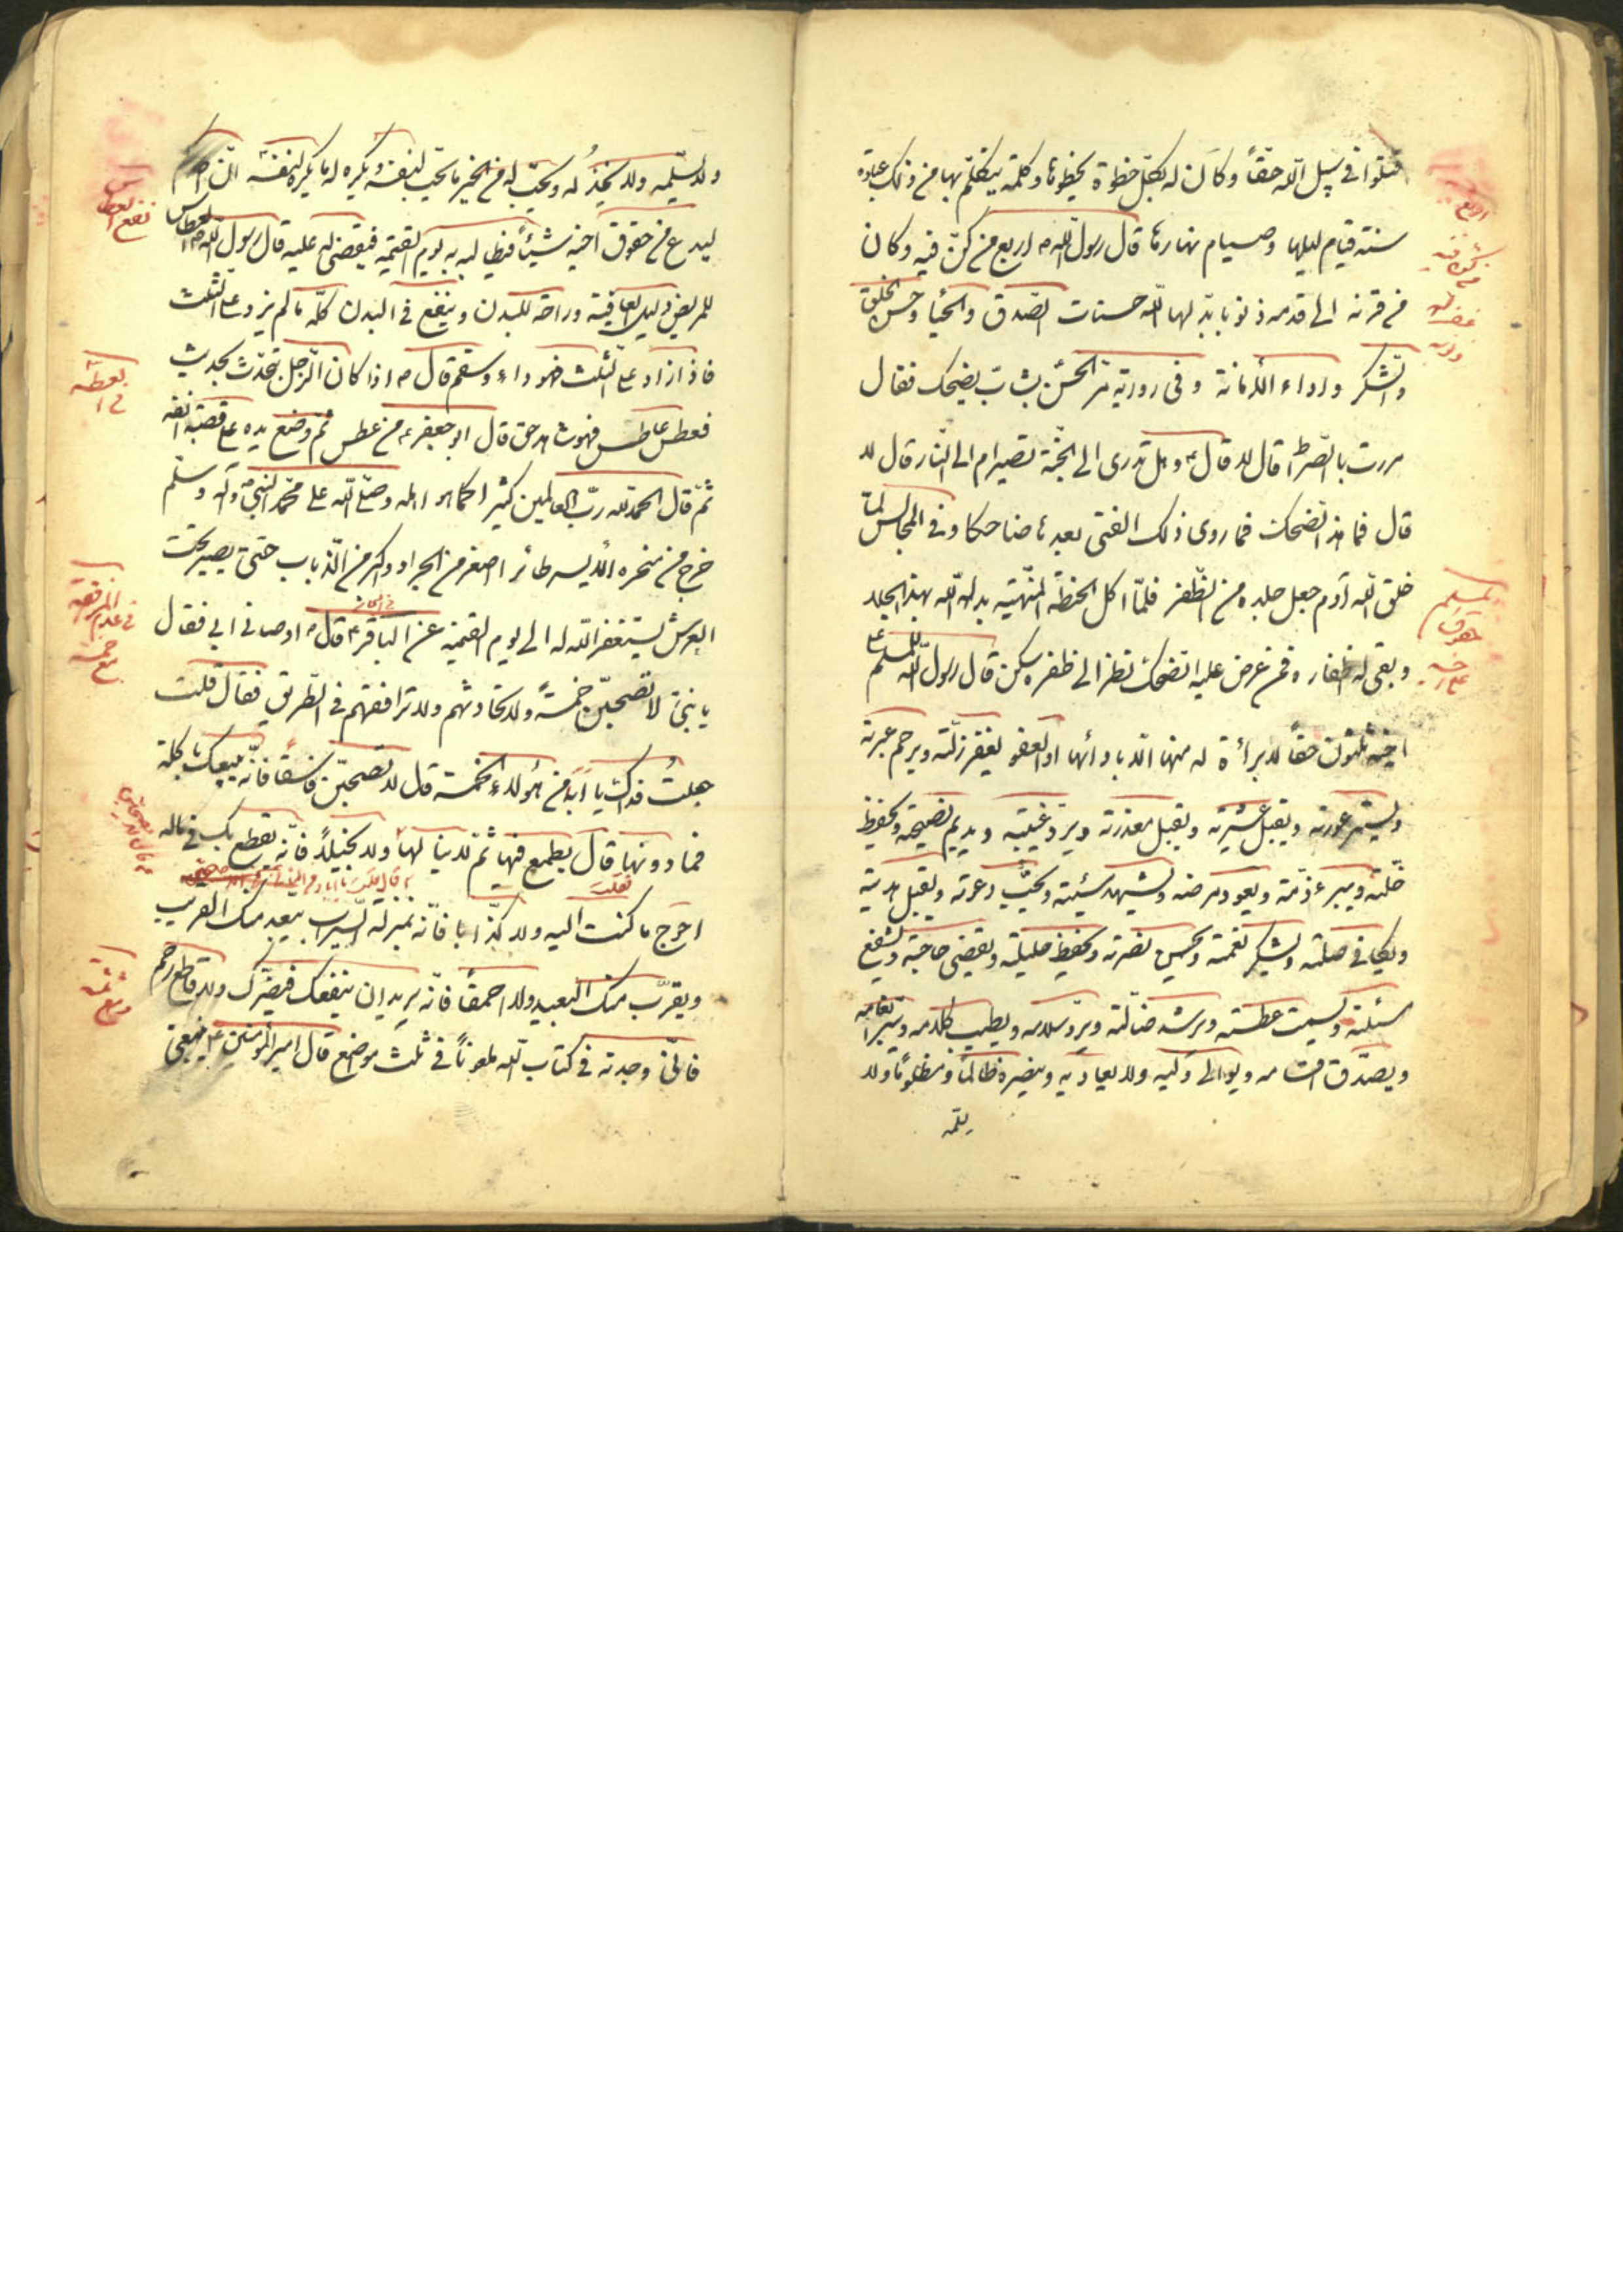 قتلوا في سبيل الله حقاً وكان له بكل خطوة يخطوها وكلمة يتكلم بها من ذلك عبادة
سنة قيام ليلها وصيام نهارها قال رسول الله ص اربع من كنّ فيه وكان
من قرنه الى قدمه ذنوبا بدّلها الله حسنات الصّدق والحيا وحسن الخلق
والشكر واداء الأمانة وفى رواية مرّ الحسن بشابّ يضحك فقال
مررت بالصّراط قال لا قال وهل تدرى الى الجنّة تصير ام الى النّار قال لا
قال فما هذا الضحك فما روى ذلك الفتى بعدها ضاحكا وفى المجالس لمّا
خلق الله آدم جعل جلده من الظّفر فلمّا اكل الحنطة المنهيّة بدله الله بهذا الجلد
وبقى له اظفار فمن عرض عليه الضحك نظر الى ظفره سكن قال رسول الله للمسلم على
اخيه ثلثون حقاً لا براءة له منها الّا بادائها او العفو يغفر زلّته ويرحم عبرته
ويستر عورته ويقيل عثرته ويقبل معذرته ويردّ غيبته ويديم نصيحته ويحفظ
خلّته ويبرء ذمّته ويعود مرضه ويشهد ميّته ويجيب دعوته ويقبل هديته
ويكافي صلته ويشكر نعمته ويحسن نصرته ويحفظ حليلته ويقضى حاجته ويشفع
مسئلته ويسمت عطسته ويرشد ضالّته ويردّ سلامه ويطيب كلامه ويبرّ انعامه
ويصدّق اقسامه ويوالى وليّه ولا يعاديه وينصره ظالماً ومظلوماً ولا
يسلمه
اربع
من كنّ فيه
غفر له
ذنوبه
للمسلم
حقوق
على اخيه
ولا يسلّمه ولا يخذله ويحبّ له من الخير ما يحبّ لنفسه ويكره له ما يكره لنفسه انّ احدكم
ليدع من حقوق اخيه شيئاً فيطالبه به يوم القيمة فيقضى له عليه قال رسول الله ص العطاس
للمريض دليل العافية وراحة للبدن وينفع في البدن كلّه ما لم يزد على الثلث
فاذا زاد على الثلث فهو داء وسقم قال ص اذا كان الرّجل يتحدّث بحديث
فعطس عاطس فهو شاهد حق قال ابو جعفر ع من عطس ثمّ وضع يده على قصبة انفه
ثمّ قال الحمد لله ربّ العالمين كثيرا كما هو اهله وصلّى الله على محمّد النبيّ وآله وسلّم
خرج من منخره الأيسر طائر اصغر من الجراد واكبر من الذّباب حتى يصير تحت
العرش يستغفر الله له الى يوم القيمة عن الباقر ع قال اوصانى ابي فقال
يا بنيّ لا تصحبنّ خمسةً ولا تحادثهم ولا ترافقهم في الطّريق فقال قلت
جعلتُ فداك يا ابه من هؤلاء الخمسة قال لا تصحبنّ فاسقاً فانّه يبيعك باكلة
فما دونها قال يطمع فيها ثمّ لا ينالها ولا بخيلاً فانّه يقطع بك في ماله
احوج ما كنت اليه ولا كذّابا فانّه بمنزلة السّراب يبعد منك القريب
ويقرّب منك البعيد ولا احمقاً فانّه يريد ان ينفعك فيضرّك ولا قاطع رحم
فانّى وجدته في كتاب الله ملعوناً في ثلث مواضع قال امير المؤمنين ع ينبغي
نفع العطاس
العطسة
في عدم المرافقة
مع خمسة